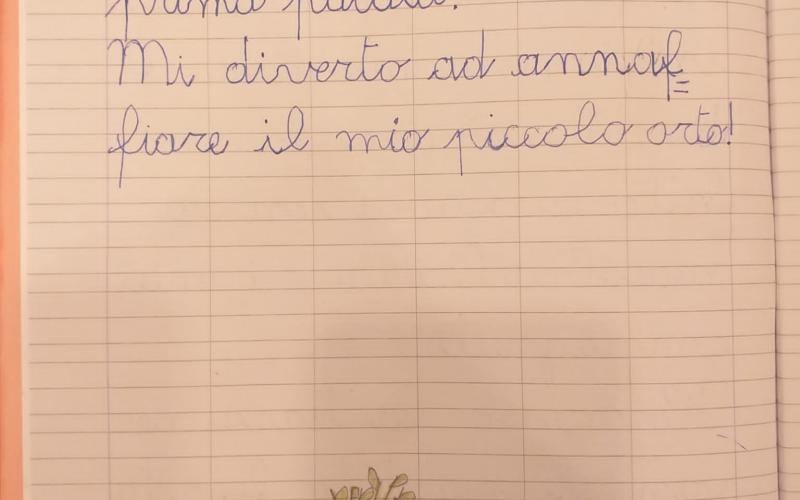 Mi diverto ad annaf=
fiare il mio piccolo orto!